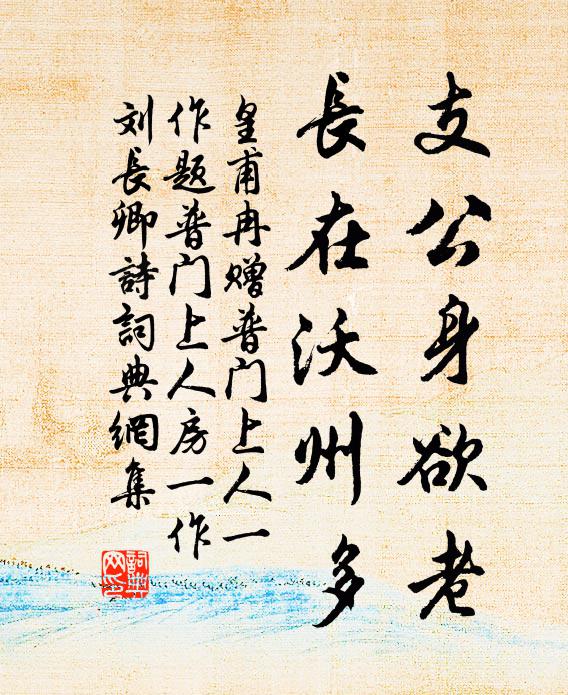 支公身欲老
長在沃州多
皇甫冉赠普门上人一
作题普门上人房一作
刘長卿詩詞典網集